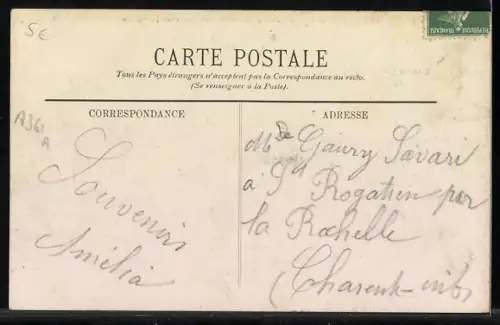 5€
RÉPUBLIQUE FRANÇAISE
CARTE POSTALE
Tous les Pays étrangers n'acceptent pas la Correspondance au recto.
(Se renseigner à la Poste).
CORRESPONDANCE
ADRESSE
A361
A
Souvenirs
Amélia
Mde Gaury Savari
a St Rogatien par
la Rochelle
(Charente-infre